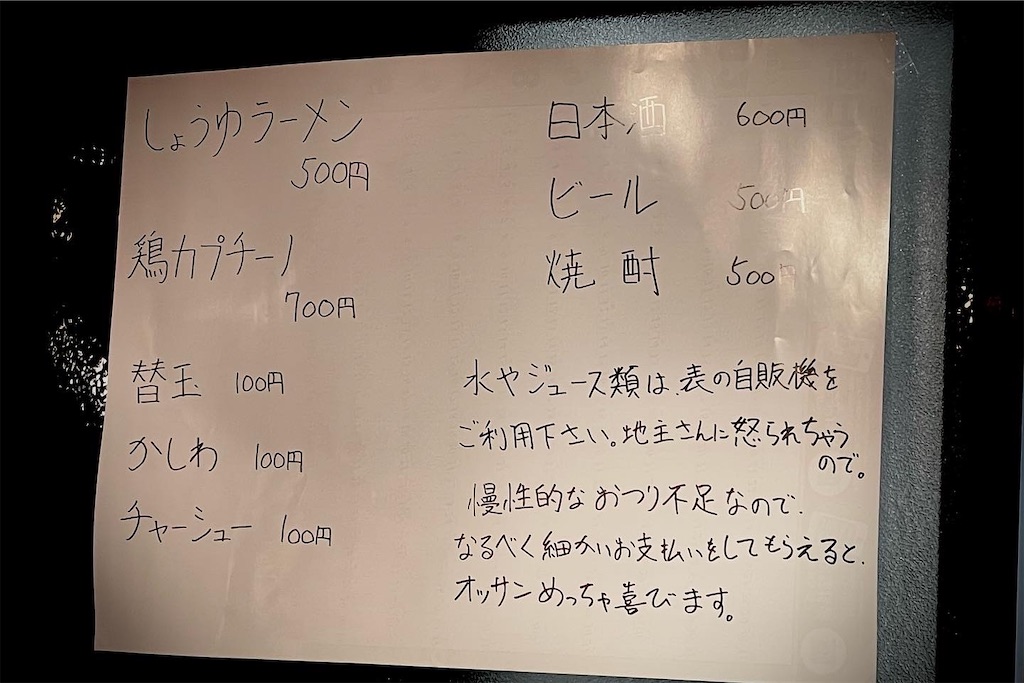 しょうゆラーメン
500円
鶏カプチーノ
700円
替玉 100円
かしわ 100円
チャーシュー 100円
日本酒 600円
ビール 500円
焼酎 500円
水やジュース類は、表の自販機を
ご利用下さい。地主さんに怒られちゃう
ので。
慢性的なおつり不足なので、
なるべく細かいお支払いをしてもらえると、
オッサンめっちゃ喜びます。